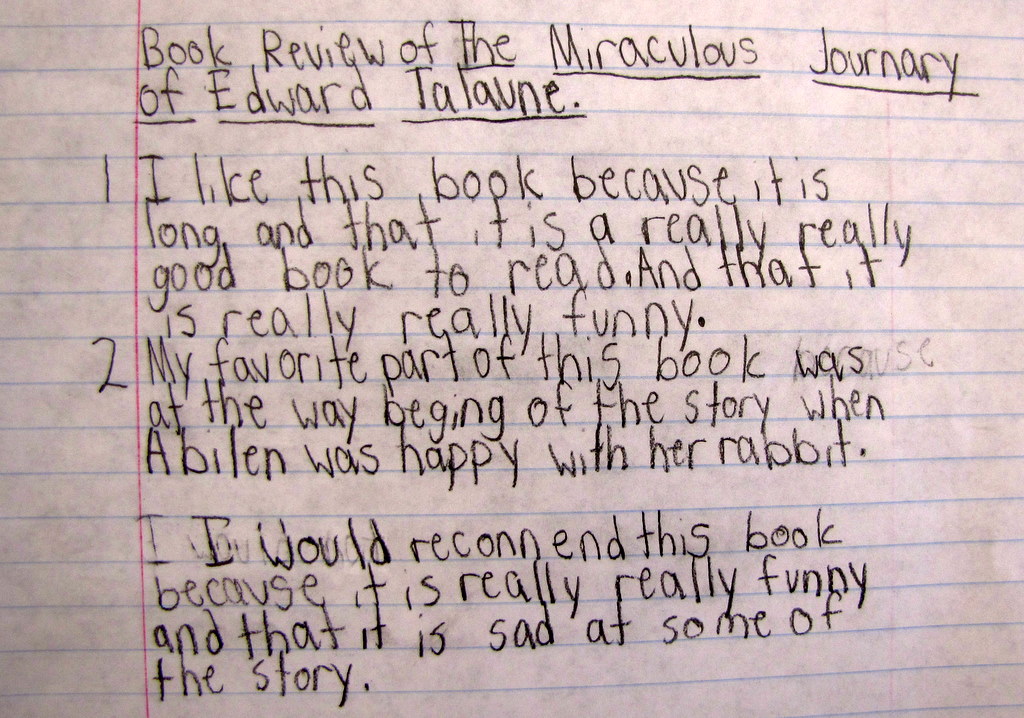 Book Review of The Miraculous Journary
of Edward Talaune.
1 I like this book because it is
long and that it is a really really
good book to read. And that it
is really really funny.
2 My favorite part of this book was
at the way beging of the story when
Abilen was happy with her rabbit.
I I Would reconnend this book
because it is really really funny
and that it is sad at some of
the story.